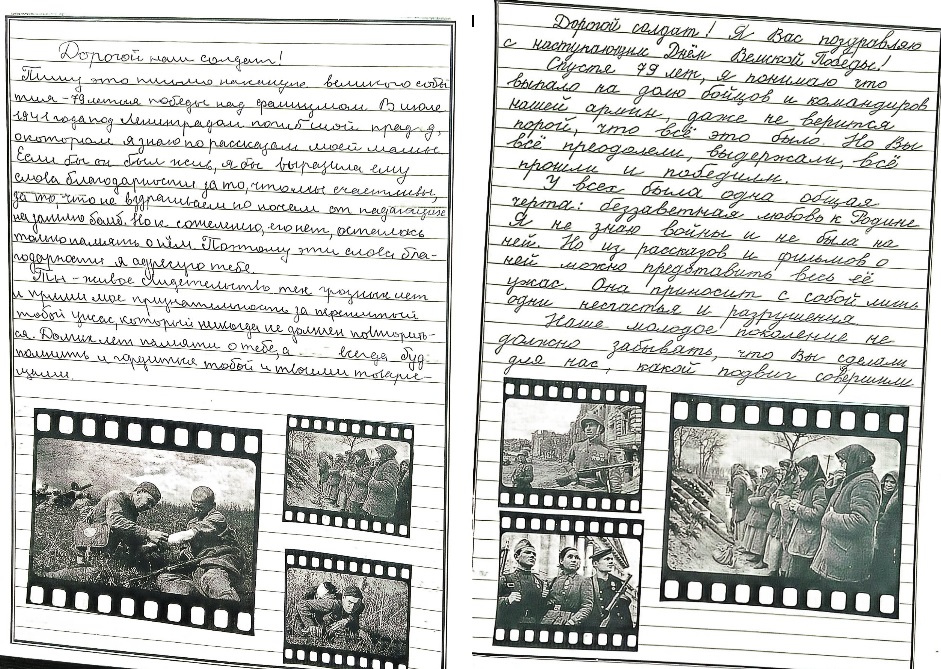 Дорогой наш солдат!
Пишу это письмо накануне великого собы-
тия - 79 летия победы над фашизмом. В июле
1941 года под Ленинградом погиб мой прадед,
о котором я знаю по рассказам моей мамы.
Если бы он был жив, я бы выразила ему
слова благодарности за то, что мы счастливы,
за то, что не вздрагиваем по ночам от падающих
на землю бомб. Но к сожалению, его нет, осталась
только память о нём. Поэтому эти слова бла-
годарности я адресую тебе.
Ты - живое свидетельство тех грозных лет
и прими мое признательность за пережитый
тобой ужас, который никогда не должен повторить-
ся. Долгих лет памяти о тебе, а всегда буд
помнить и гордиться тобой и твоими товари-
щами.
Дорогой солдат! Я Вас поздравляю
с наступающим Днём Великой Победы!
Спустя 79 лет, я понимаю что
выпало на долю бойцов и командиров
нашей армии, даже не верится
порой, что всё это было. Но Вы
всё преодолели, выдержали, всё
прошли и победили.
У всех была одна общая
черта: беззаветная любовь к Родине
Я не знаю войны и не была на
ней. Но из рассказов и фильмов о
ней можно представить весь её
ужас. Она приносит с собой лишь
одни несчастья и разрушения.
Наше молодое поколение не
должно забывать, что Вы сделали
для нас, какой подвиг совершили